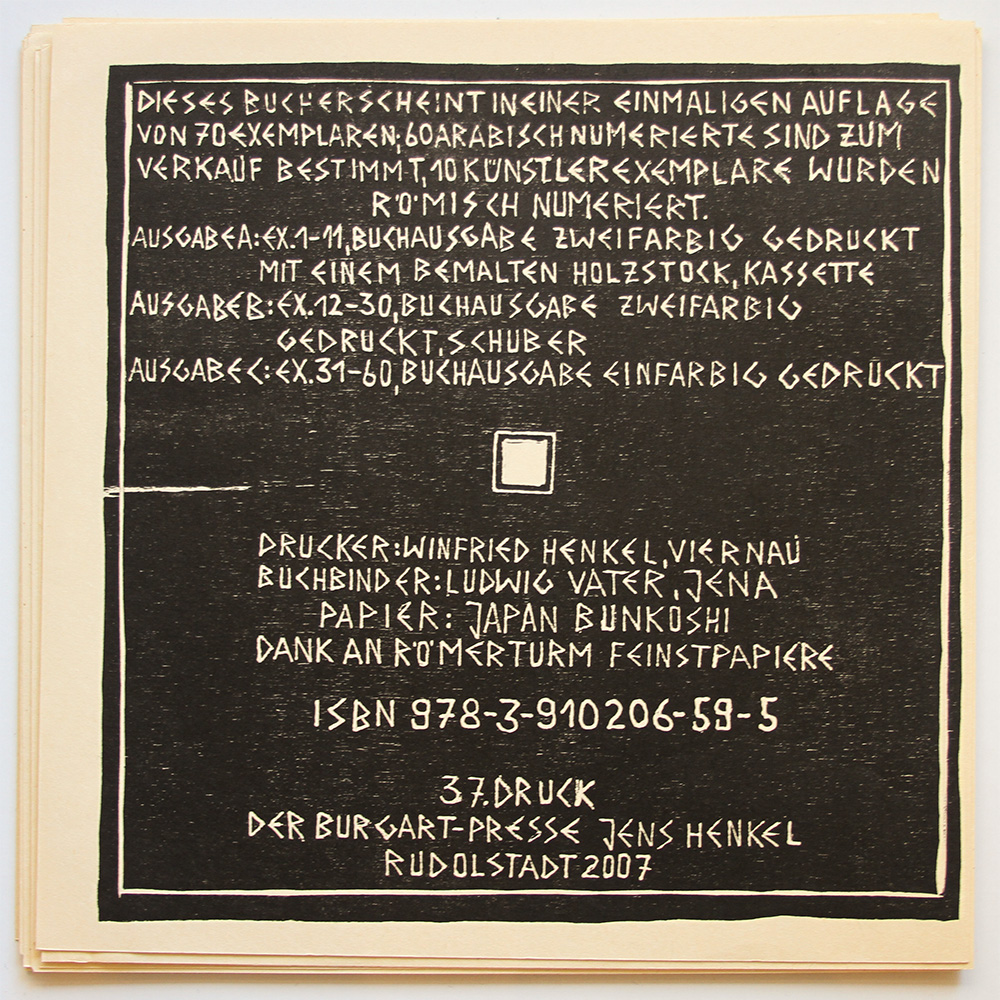 DIESES BUCH ERSCHEINT IN EINER EINMALIGEN AUFLAGE
VON 70 EXEMPLAREN; 60 ARABISCH NUMERIERTE SIND ZUM
VERKAUF BESTIMMT, 10 KÜNSTLEREXEMPLARE WURDEN
RÖMISCH NUMERIERT.
AUSGABE A: EX. 1-11, BUCHAUSGABE ZWEIFARBIG GEDRUCKT
MIT EINEM BEMALTEN HOLZSTOCK, KASSETTE
AUSGABE B: EX. 12-30, BUCHAUSGABE ZWEIFARBIG
GEDRUCKT, SCHUBER
AUSGABE C: EX. 31-60, BUCHAUSGABE EINFARBIG GEDRUCKT
DRUCKER: WINFRIED HENKEL, VIERNAU
BUCHBINDER: LUDWIG VATER, JENA
PAPIER: JAPAN BUNKOSHI
DANK AN RÖMERTURM FEINSTPAPIERE
ISBN 978-3-910206-59-5
37. DRUCK
DER BURGART-PRESSE JENS HENKEL
RUDOLSTADT 2007